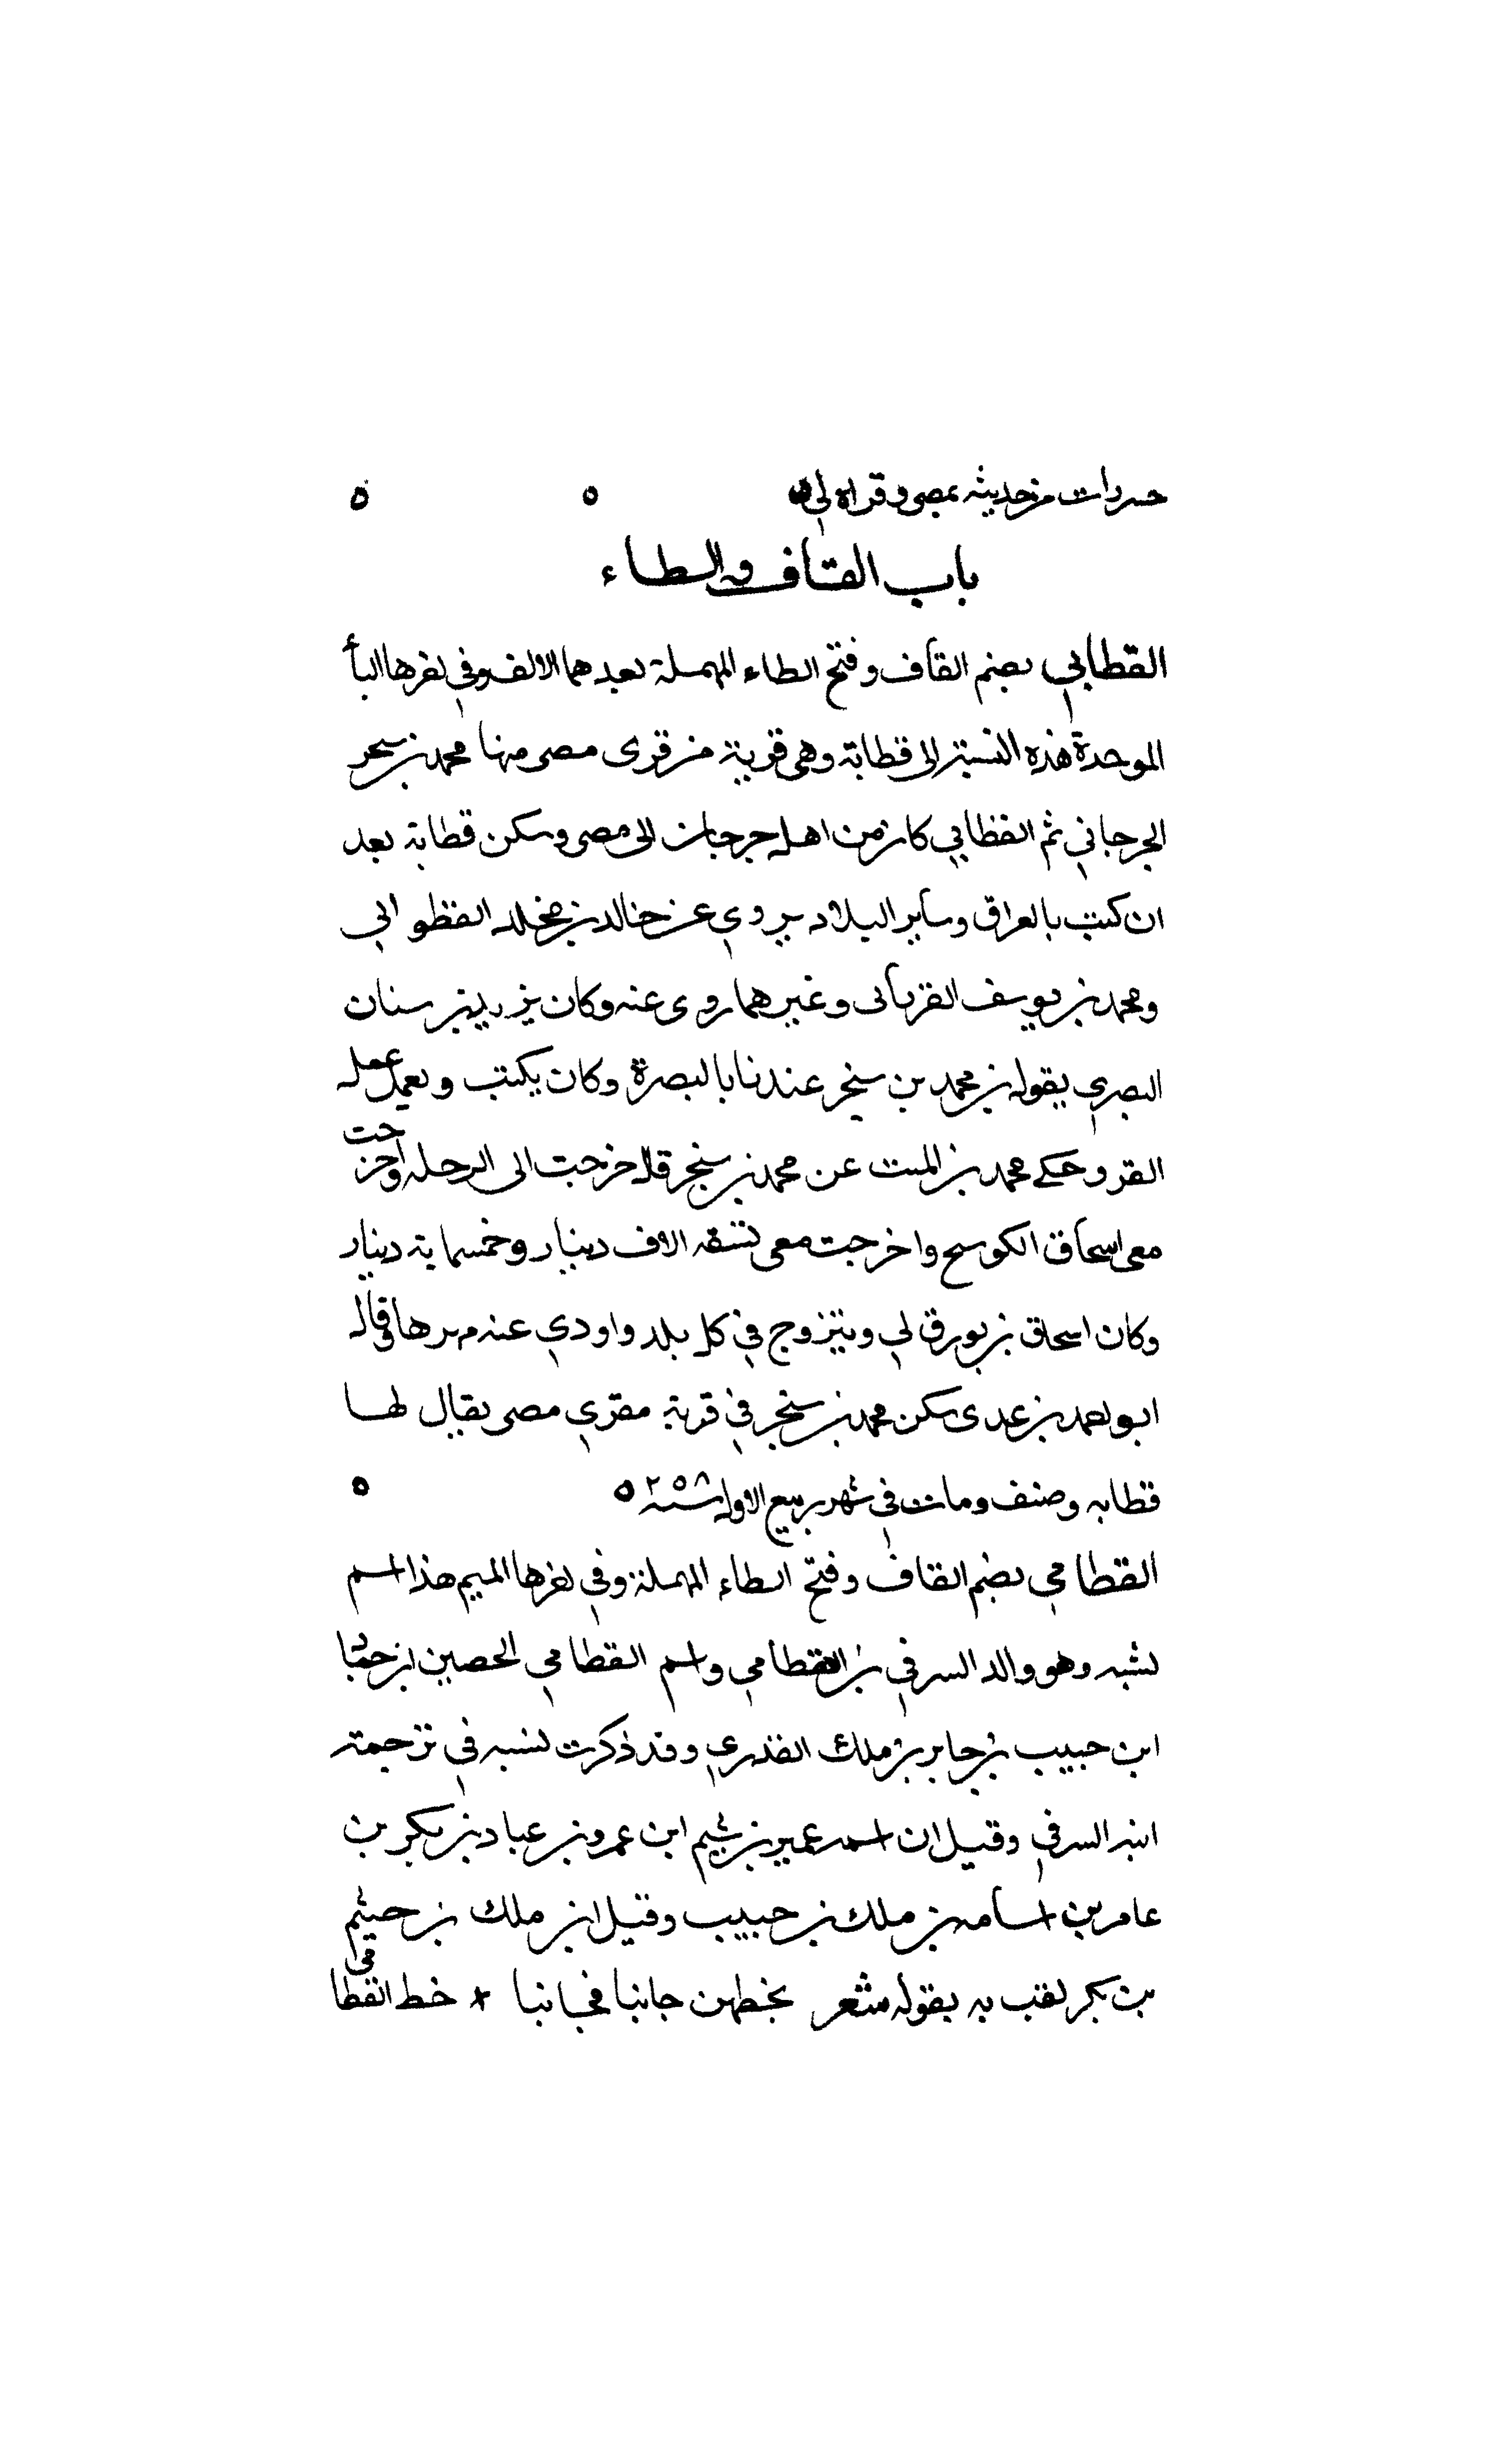 حدرات من حديثه بمصر وقراه لي ٥ ٥ ٥
باب القاف والطاء
القطابي بضم القاف وفتح الطاء المهملة بعدهما الالف وفي اخرها البأ
الموحدة هذه النسبة الى قطابة وهي قرية من قرى مصر منها محمد بن سحر
الجرجاني ثم القطابي كان من اهل جرجان الى مصر وسكن قطابة بعد
ان كتب بالعراق وساير البلاد يروي عن خالد بن مخلد القطواني
ومحمد بن يوسف الفريابى وغيرهما روى عنه وكان يزيد بن سنان
البصري يقول بن محمد بن سنجر عندنا بالبصرة وكان يكتب ويعمل عمل
القر وحكى محمد بن المست عن محمد بن سنجر قال خرجت الى الرحله واخرجت
معى اسحاق الكوسج واخرجت معى تسعه الاف دينار وخمسماية دينار
وكان اسحاق بن يورق لي ويتزوج في كل بلد واودي عنه مهرها قال
ابو احمد بن عدى سكن محمد بن سنجر في قرية مقري مصر يقال لها
قطابه وصنف ومات في شهر ربيع الاول سنة ٢٥٨ ٥ ٥
القطامي بضم القاف وفتح الطاء المهملة وفي اخرها الميم هذا اسم
نسبه وهو والد السرفي بن القطامي واسم القطامي الحصين بن حمال
ابن حبيب بن جابر بن ملك الغدري وقد ذكرت نسبه في ترجمة
ابنه السرفي وقيل ان اسمه عمير بن شييم ابن عمرو بن عباد بن بكر بن
عامر بن اسامه بن ملك بن حبيب وقيل ابن ملك بن حيثم
بن بكر لقب به بقوله شعر يخطهن جانبا فجانبا * خط القطامي